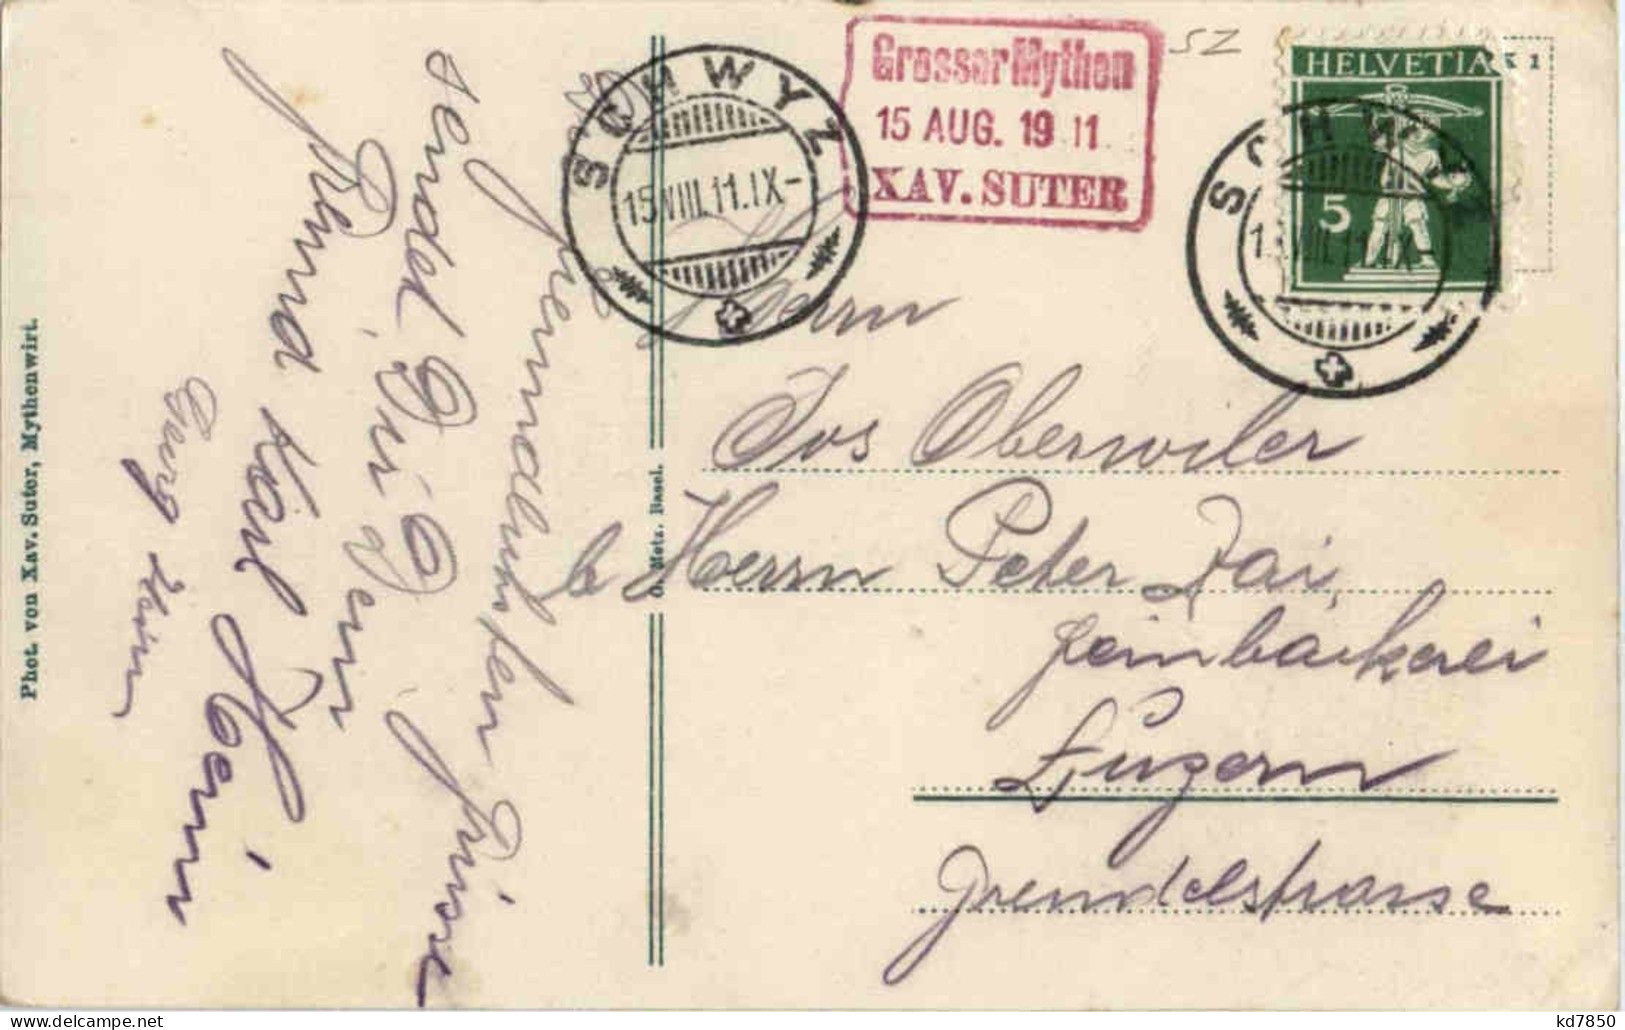 Grosser Mythen
15 AUG. 19 11.
XAV. SUTER
SZ
HELVETIA
K 1
5
SCHWYZ
15.VIII.11.IX-
SCHWYZ
VIII.11.IX
Phot. von Xav. Suter, Mythenwirt.
O. Metz. Basel.
Herrn
Jos Oberwiler
b Herrn Peter Zai,
Feinbäckerei
Luzern
Grendelstrasse
freundlichsten Grüsse
sendet Dir Dein
Freund Karl Hein
Georg Hein
kd7850